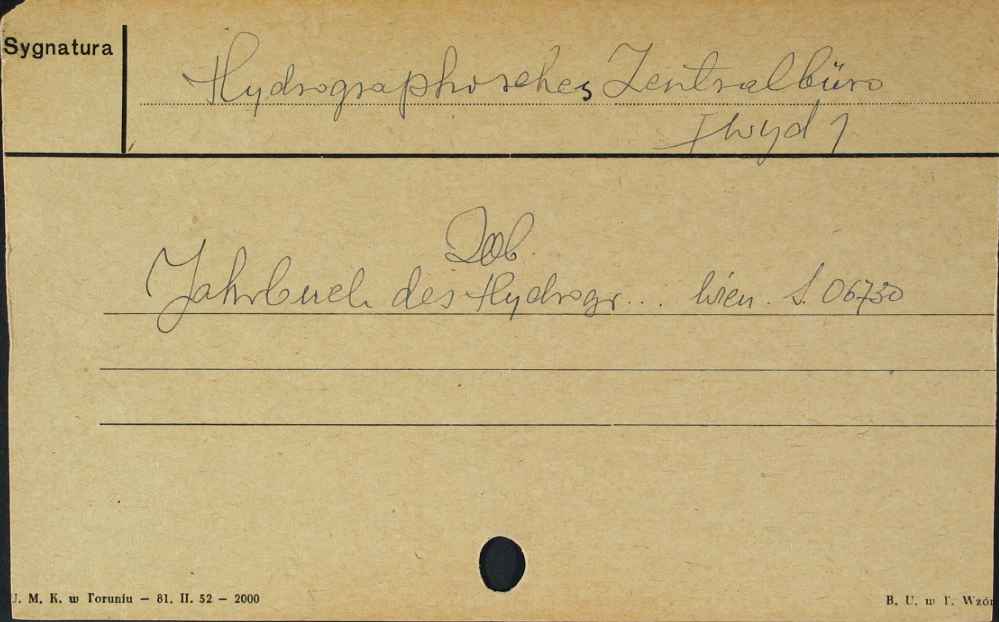 Sygnatura
Hydrographisches Zentralbüro
[wyd]
Zob.
Jahrbuch des Hydrogr... Wien. S. 06730
U. M. K. w Toruniu — 81. II. 52 — 2000
B. U. w T. Wzór